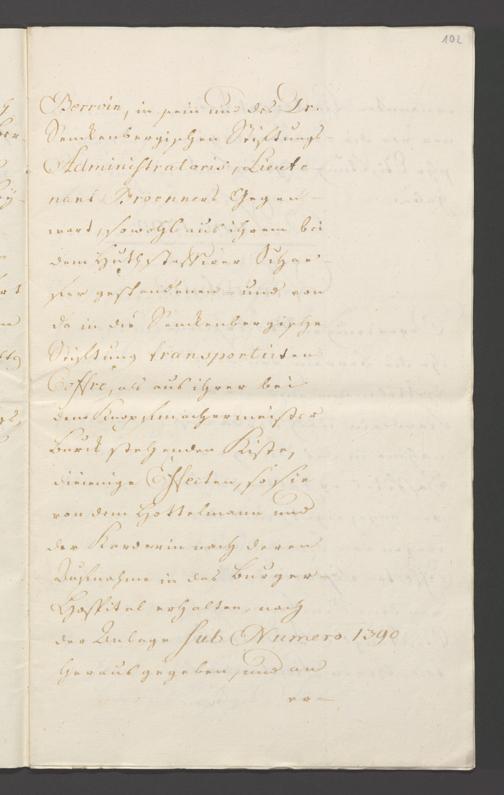 102
Berrvin, in sein und des Dr.
Senckenbergischen Stiftungs-
Administratoris, Lieute
nant Broenners Gegen-
wart, sowohl aus ihrem bei
dem Huthstaffirer Schae-
fer gestandenen und von
da in die Senckenbergische
Stiftung transportirten
Coffre, als aus ihrer bei
dem Knopfmachermeister
Burck stehenden Kiste,
diejenige Effecten, so sie
von dem Hottelmann und
der Karderin nach deren
Aufnahme in das Burger
Hospital erhalten, nach
der Anlage sub Numero 1390
herausgegeben, und an